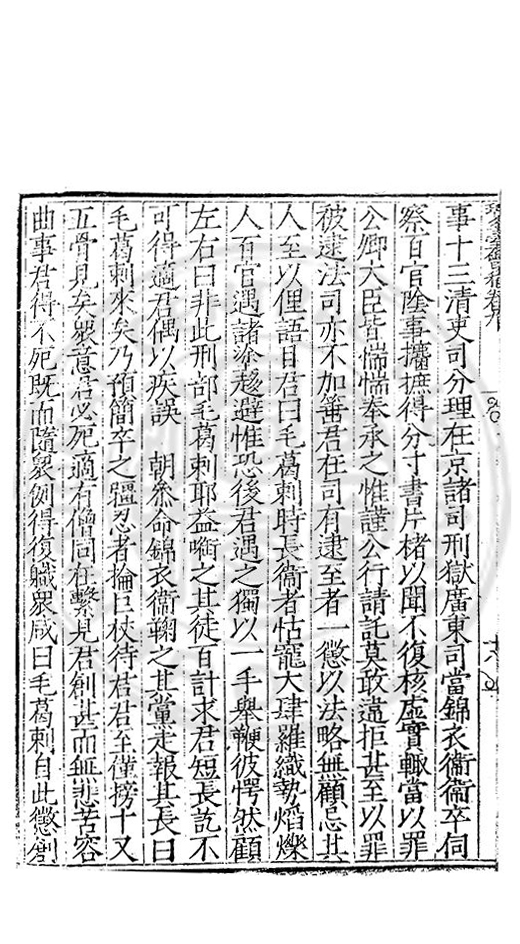 事十三清吏司分理在京諸司刑獄廣東司當錦衣衛衛卒伺
察百官陰事攟摭得分寸書片楮以聞不復核虛實輙當以罪
公卿大臣皆惴惴奉承之惟謹公行請託莫敢違拒甚至以罪
被逮法司亦不加箠君在司有逮至者一懲以法略無顧忌其
人至以俚語目君曰毛葛剌時長衞者怙寵大肆羅織勢焰爍
人百官遇諸塗趍避惟恐後君遇之獨以一手舉鞭彼愕然顧
左右曰非此刑部毛葛剌耶益嗛之其徒百計求君短長訖不
可得適君偶以疾誤　朝叅命錦衣衞鞠之其黨走報其長曰
毛葛剌來矣乃預簡卒之彊忍者掄巨杖待君君至僅搒十又
五骨見矣衆意君必死適有僧同在繫見君創甚而無悲苦容
曲事君得不死旣而隨衆例得復職衆咸曰毛葛剌自此懲創